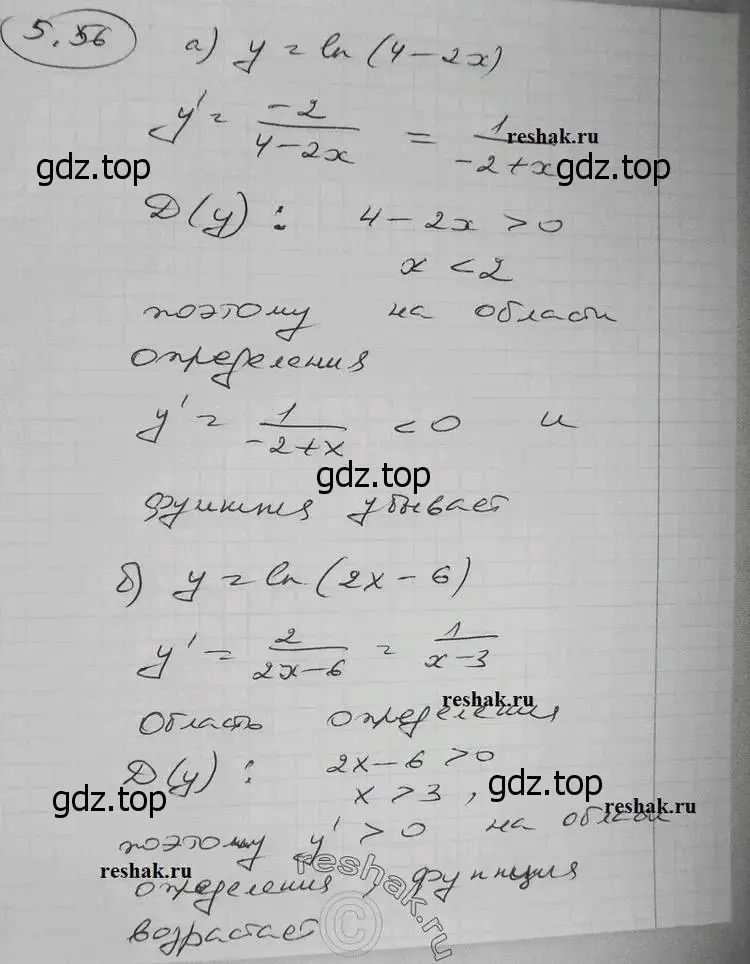 5.56 а) y = ln(4-2x)
y' = -2/(4-2x) = 1/(-2+x)
reshak.ru
gdz.top gdz.top
D(y): 4-2x > 0
x < 2
поэтому на области
определения
y' = 1/(-2+x) < 0 и
gdz.top
функция убывает
б) y = ln(2x-6)
y' = 2/(2x-6) = 1/(x-3)
reshak.ru
область определения
D(y): 2x-6 > 0
gdz.top x > 3, gdz.top
reshak.ru
поэтому y' > 0 на области
reshak.ru
определения, функция
reshak.ru
возрастает ©